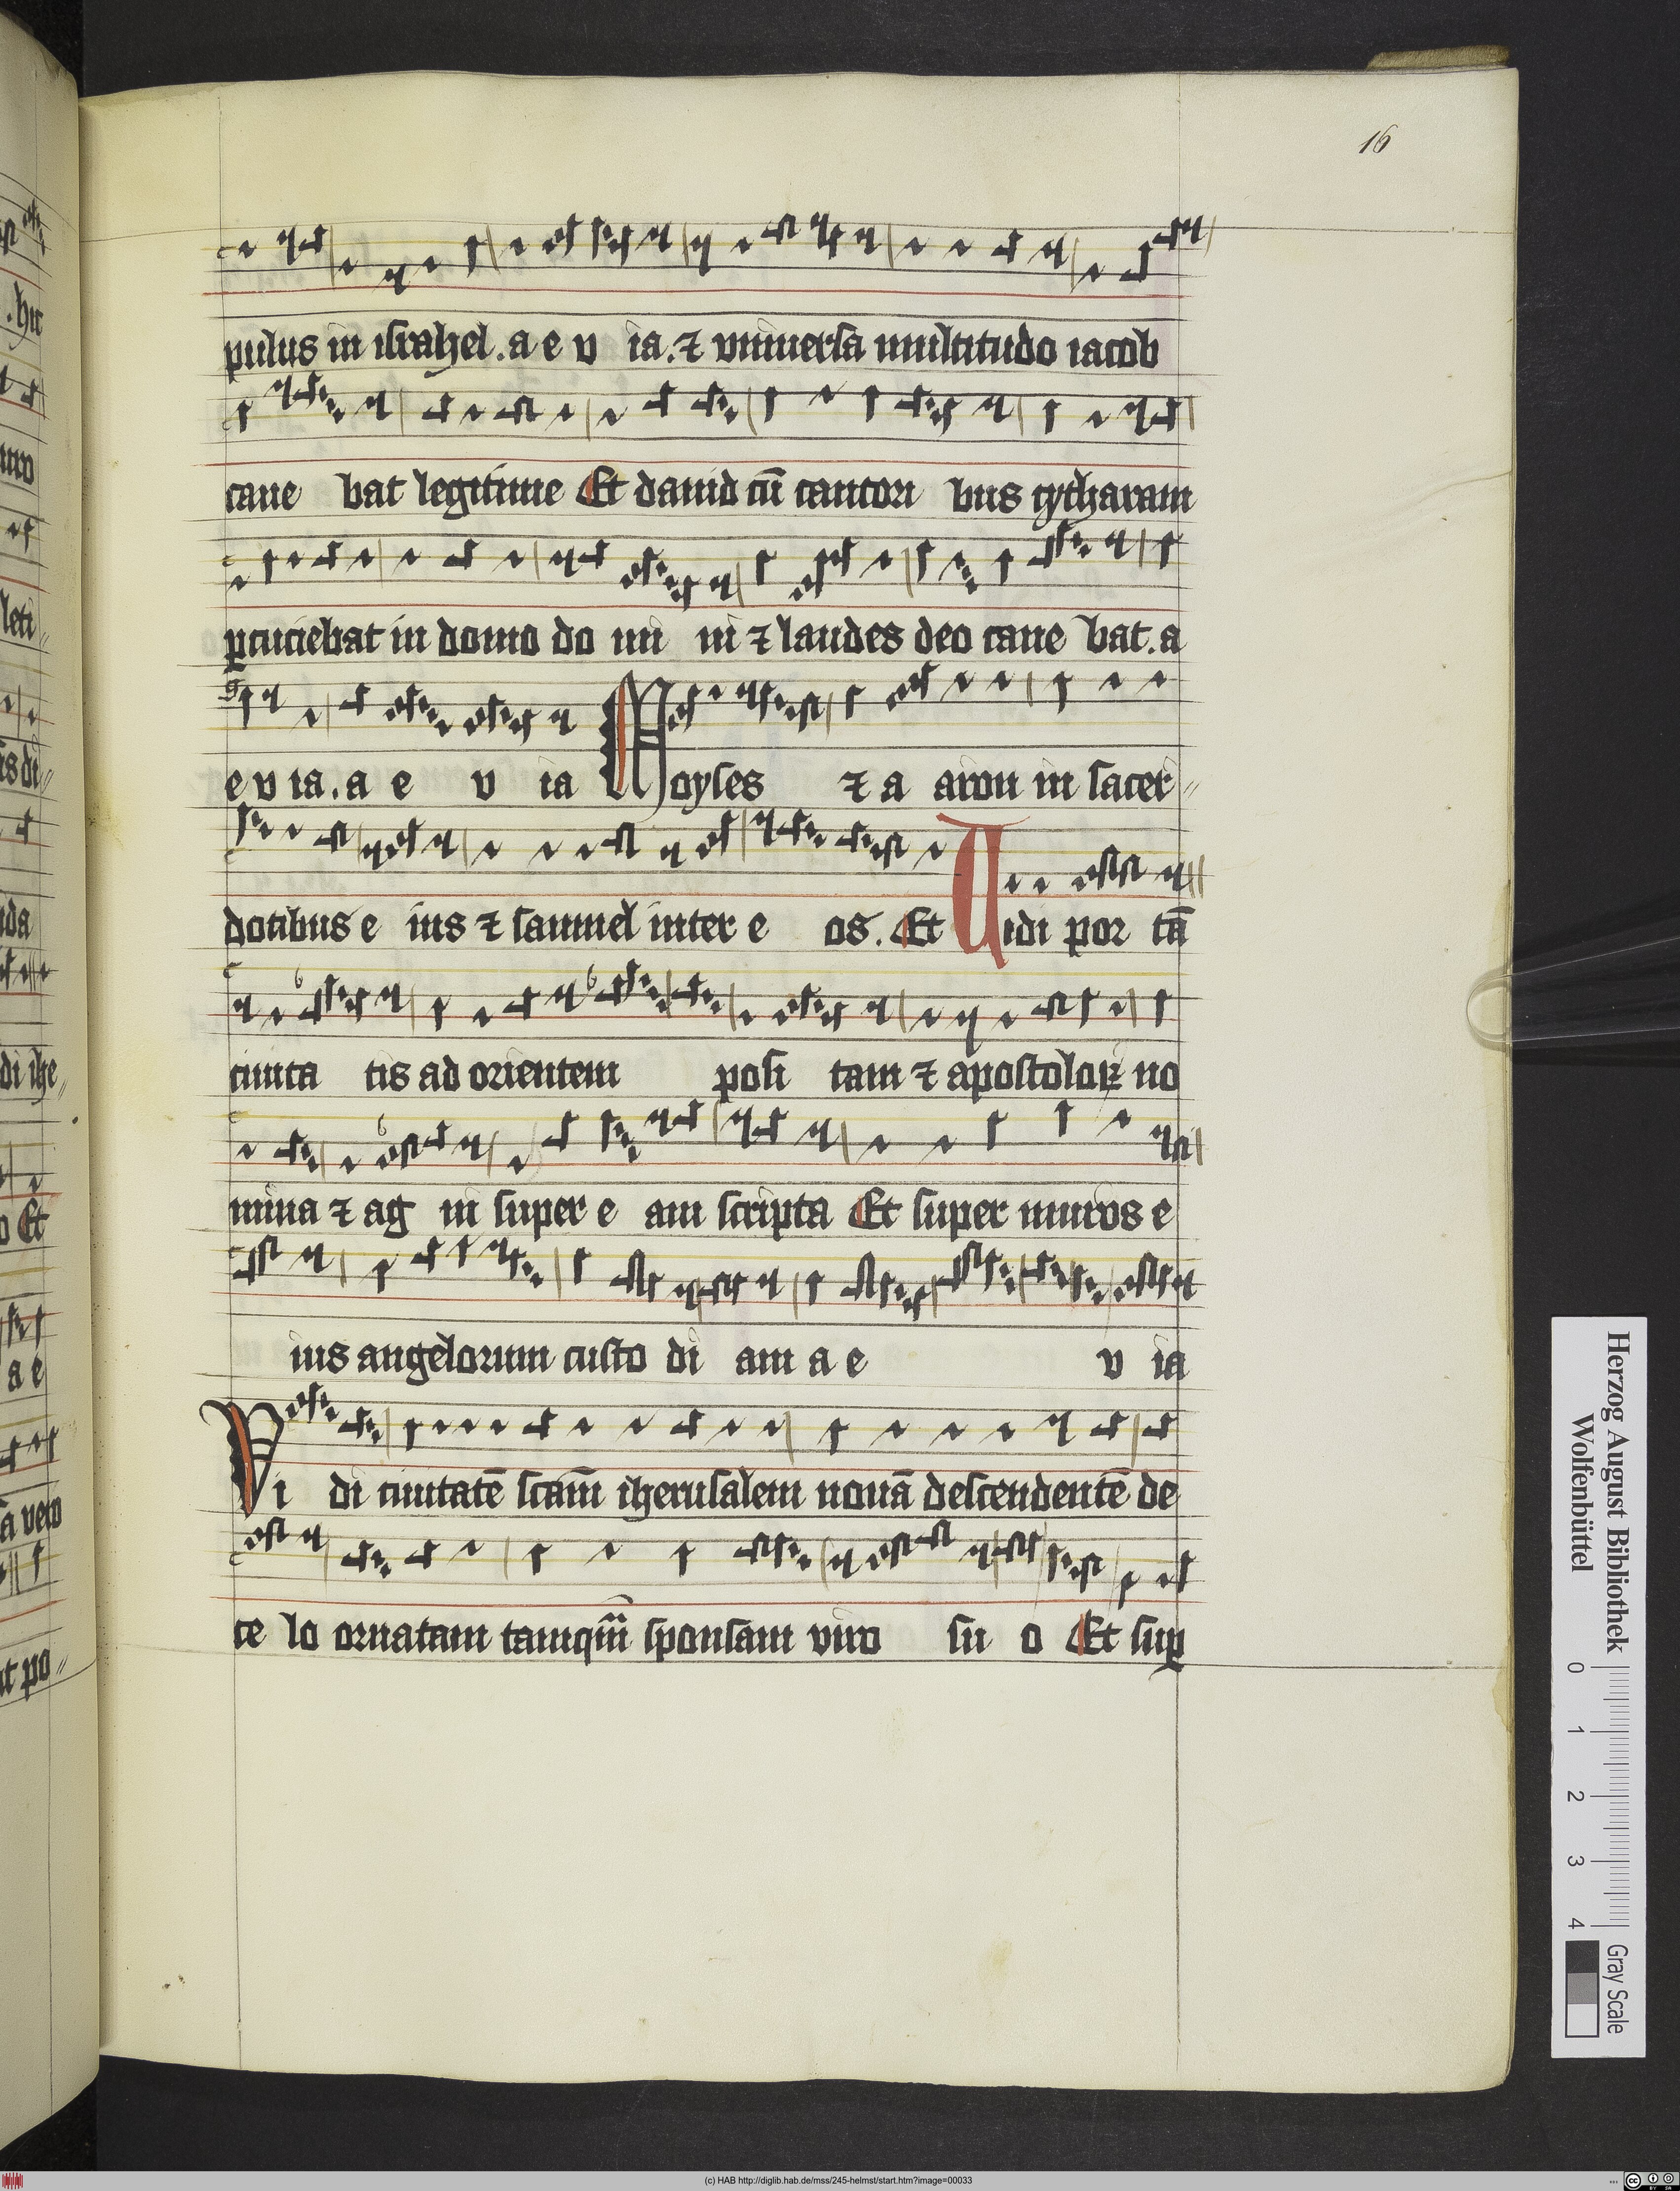 16
pulus in israhel . a e v ia . ⁊ vniuersa multitudo iacob
cane bat legitime Et dauid cū cantori bus cytharam
ꝑcuciebat in domo do mi ni ⁊ laudes deo cane bat . a
e v ia . a e v ia Moyses ⁊ a aron in sacer〃
dotibus e ius ⁊ samuel inter e os . Et Uidi por tā
ciuita tis ad orientem posi tam ⁊ apostoloꝝ no
mina ⁊ ag ni super e am scripta Et super muros e
ius angelorum custo di am a e v ia
Vi di ciuitatē scām iherusalem nouā descendentē de
ce lo ornatam tamqm̄ sponsam viro su o Et suꝑ
. hic
leti〃
is di〃
di ihe〃
o Et
a e
a vero
it po〃
Herzog August Bibliothek
Wolfenbüttel
0 1 2 3 4
Gray Scale
(c) HAB http://diglib.hab.de/mss/245-helmst/start.htm?image=00033